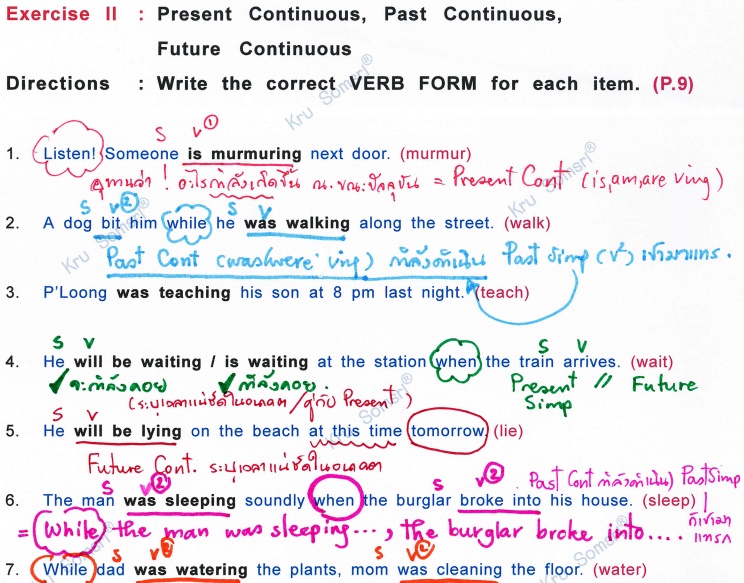 Exercise II : Present Continuous, Past Continuous,
Future Continuous
Directions : Write the correct VERB FORM for each item. (P.9)
Kru Somsri®
S V①
1. Listen! Someone is murmuring next door. (murmur)
อุทานว่า ! อะไรกำลังเกิดขึ้น ณ.ขณะปัจจุบัน = Present Cont (is,am,are Ving)
S V② S V
2. A dog bit him while he was walking along the street. (walk)
Kru Somsri®
Kru Somsri®
Past Cont (was/were Ving) กำลังดำเนิน Past Simp (V²) เข้ามาแทรก.
3. P'Loong was teaching his son at 8 pm last night. (teach)
S V S V
4. He will be waiting / is waiting at the station when the train arrives. (wait)
✓ จะกำลังคอย ✓ กำลังคอย. Present // Future
Simp
(ระบุเวลาแน่ชัดในอนาคต / คู่กับ Present)
Kru Somsri®
S V
5. He will be lying on the beach at this time tomorrow. (lie)
Future Cont. ระบุเวลาแน่ชัดในอนาคต
S V② S V② Past Cont กำลังดำเนิน) Past Simp
6. The man was sleeping soundly when the burglar broke into his house. (sleep)
= While the man was sleeping..., the burglar broke into.... ก็เข้ามา
แทรก
Kru Somsri®
S V② S V②
7. While dad was watering the plants, mom was cleaning the floor. (water)